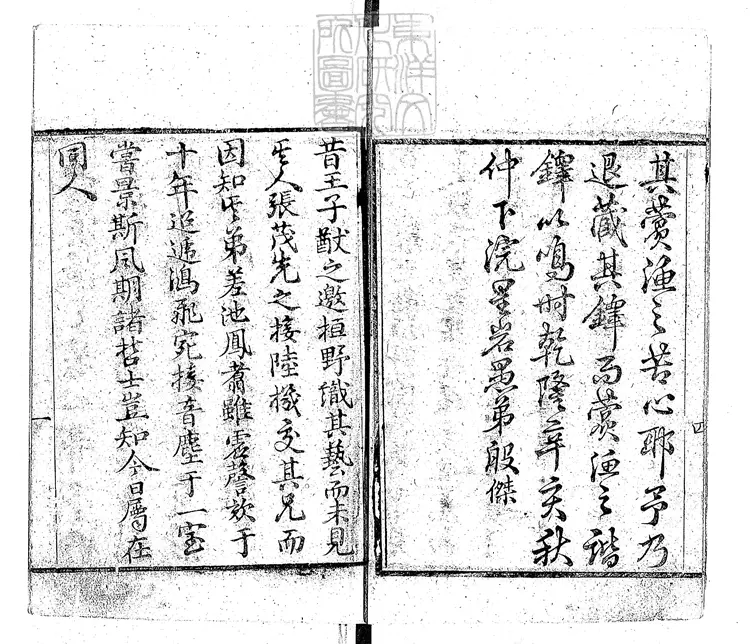 其蕢漁之苦心耶予乃
退藏其鐸而蕢漁之諧
鐸以鳴時乾隆辛亥秋
仲下浣星岩愚弟殷傑
四
昔王子猷之邀栢野識其藝而未見
其人張茂先之接陸機交其兄而
因知其弟差池鳳翥雖虛謦欬于
十年迢遞鴻飛宛接音塵于一室
嘗景斯夙期諸哲士豈知今日屬在
同人
一
東洋文化研究所圖書